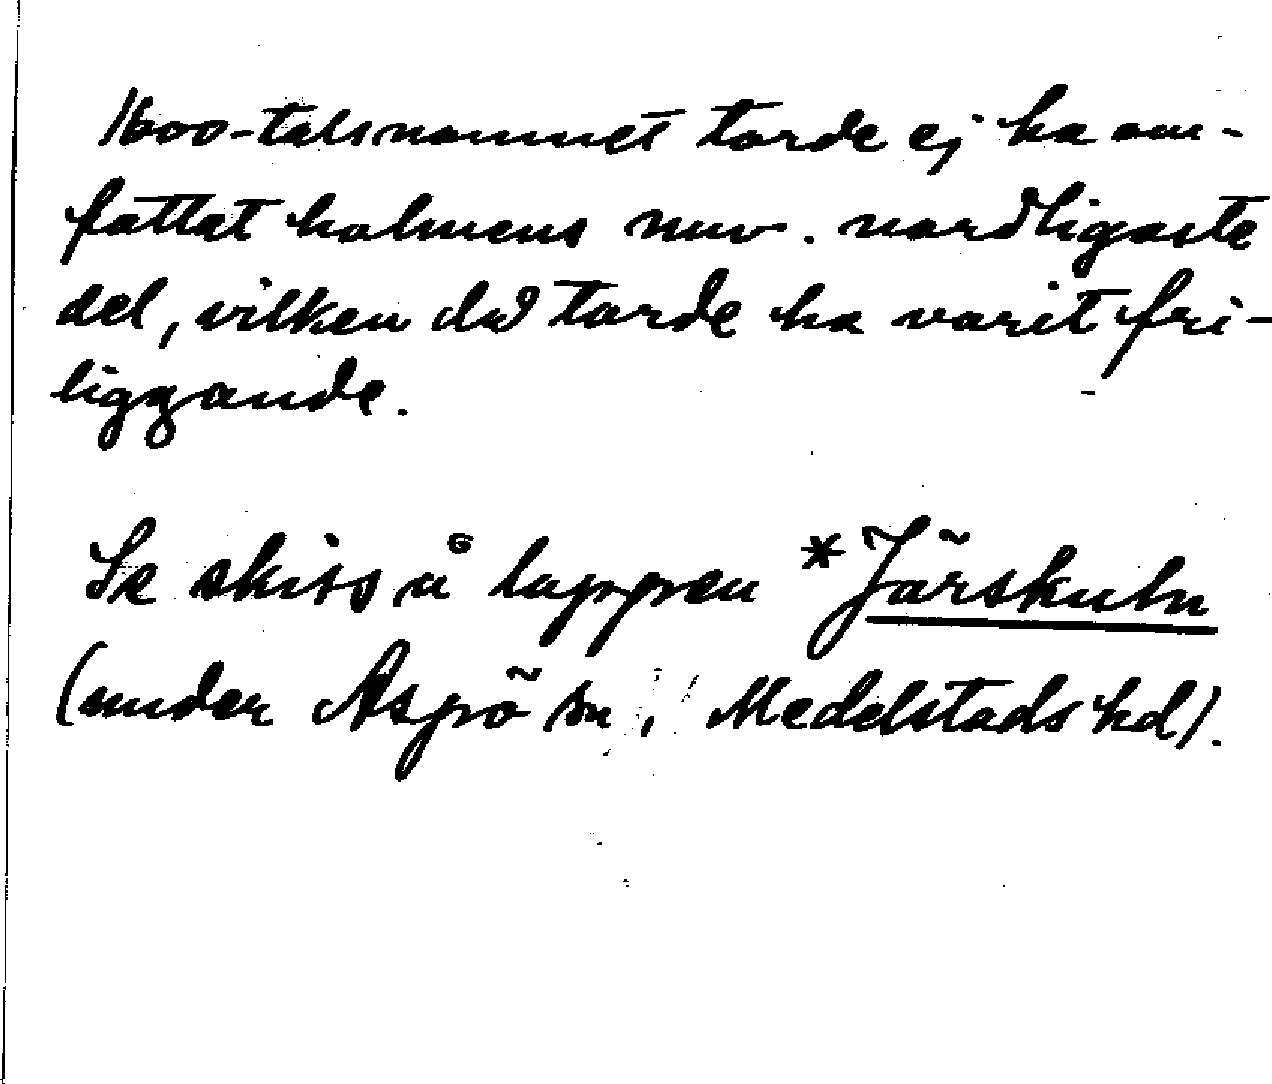 1600-talsnamnet torde ej ha om-
fattat holmens nuv. nordligaste
del, vilken då torde ha varit fri-
liggande.
Se skiss å lappen *Järskuln
(under Aspö sn, Medelstads hd).